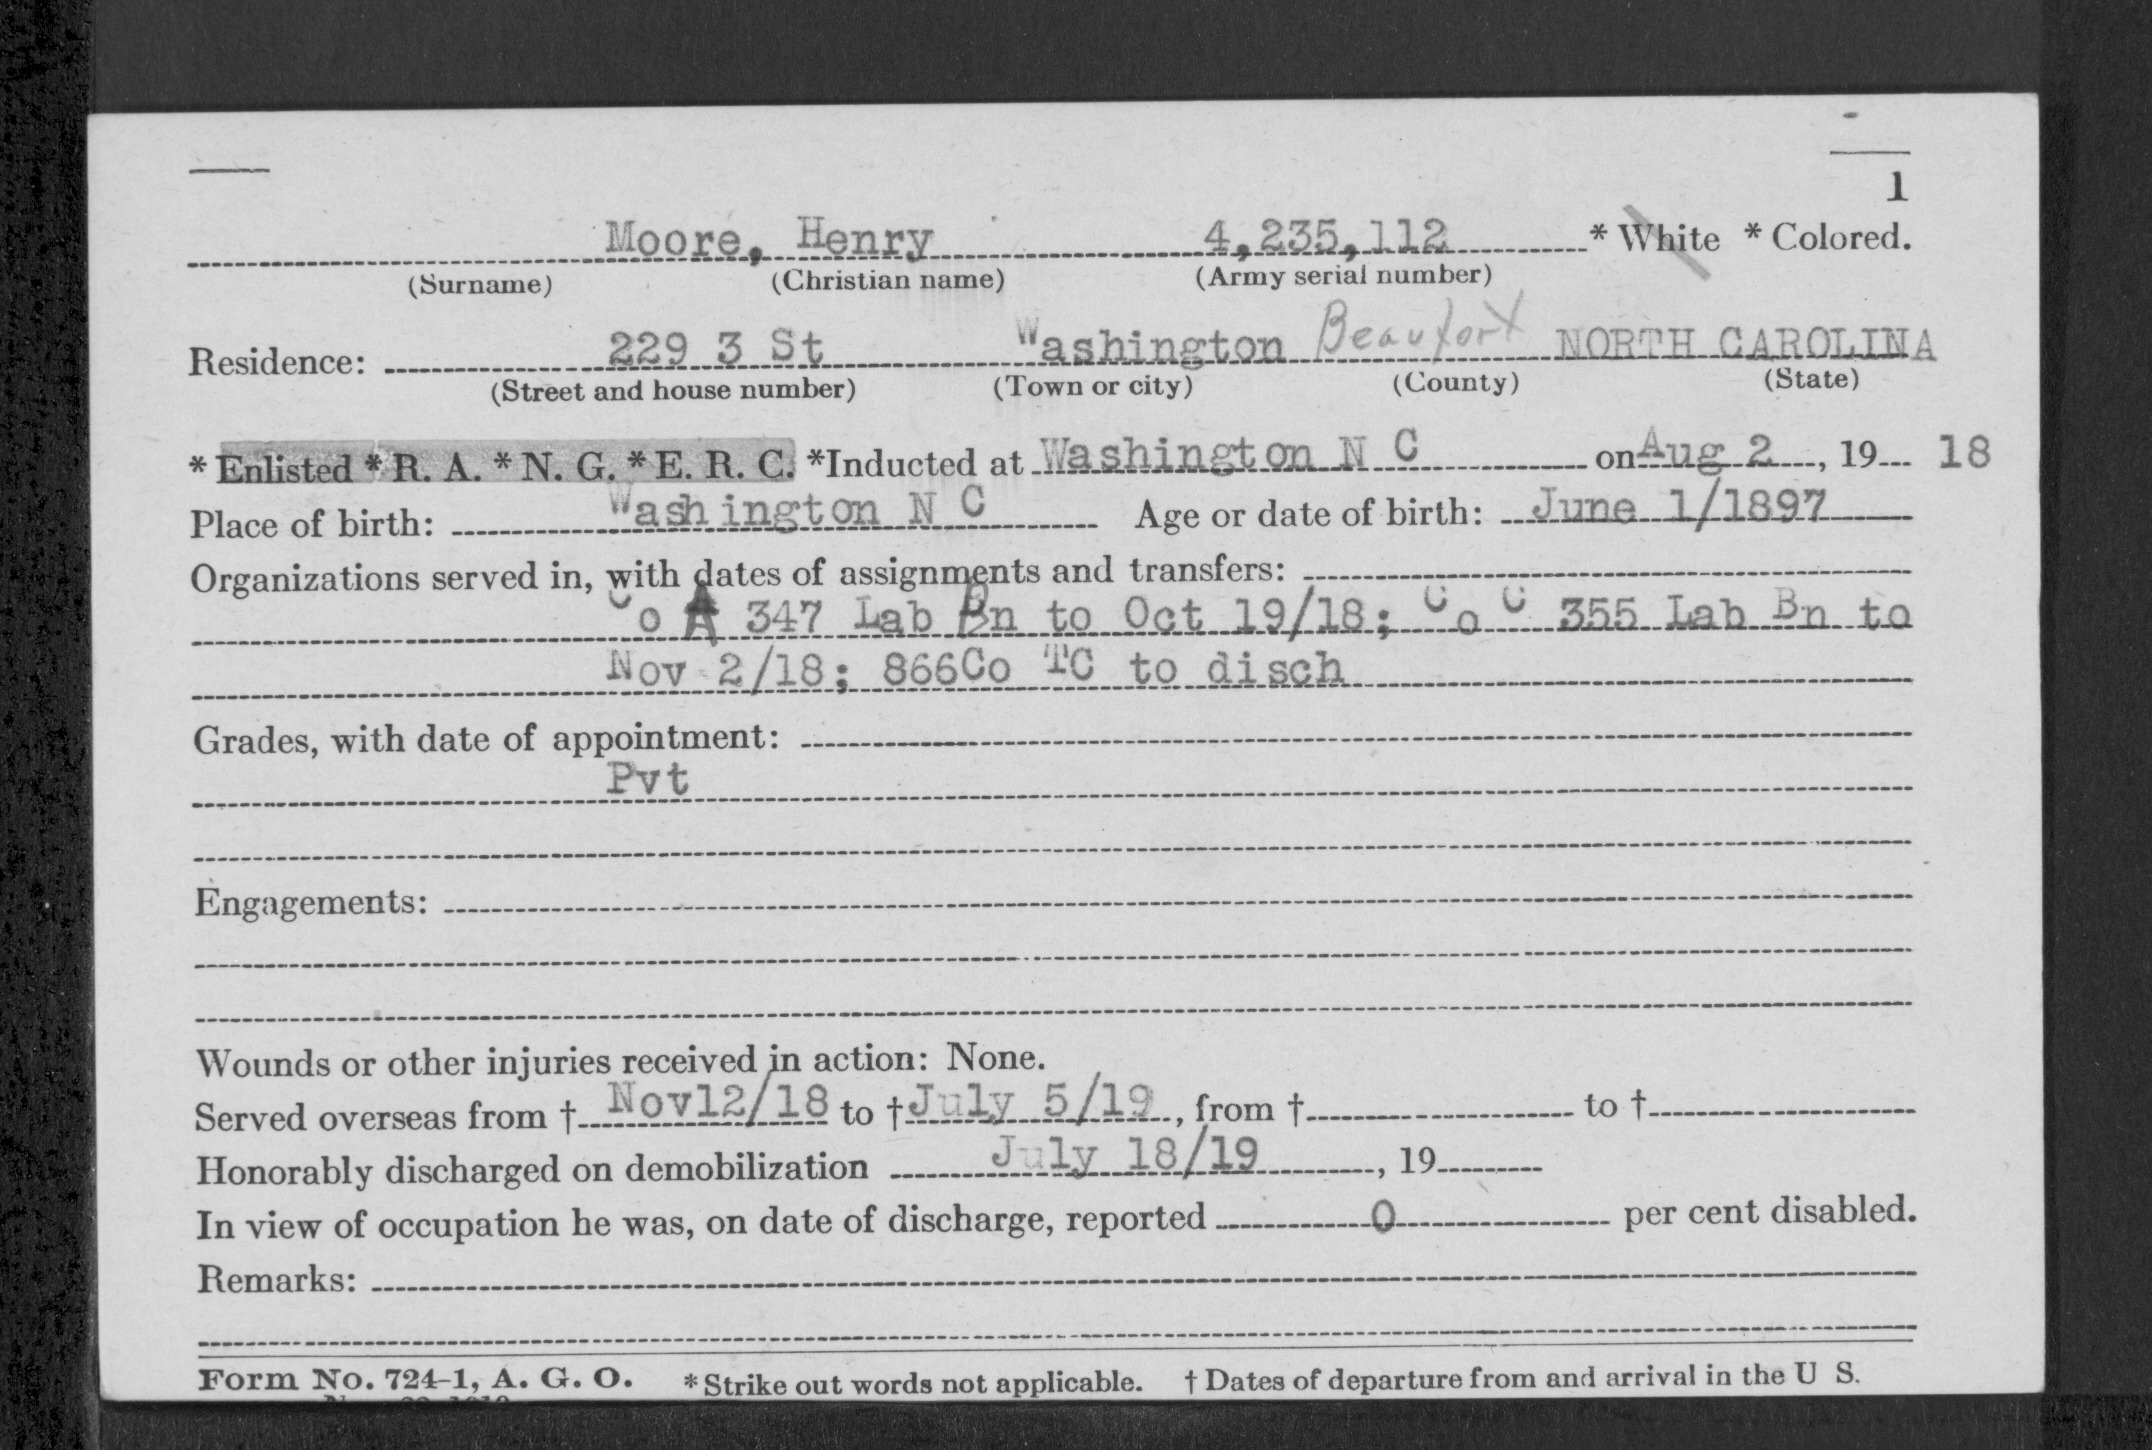 1
Moore, Henry 4,235,112 * White * Colored.
(Surname) (Christian name) (Army serial number)
Residence: 229 3 St Washington Beaufort NORTH CAROLINA
(Street and house number) (Town or city) (County) (State)
* Enlisted * R. A. * N. G. * E. R. C. *Inducted at Washington N C on Aug 2, 19 18
Place of birth: Washington N C Age or date of birth: June 1/1897
Organizations served in, with dates of assignments and transfers:
Co A 347 Lab Bn to Oct 19/18; Co C 355 Lab Bn to
Nov 2/18; 866Co TC to disch
Grades, with date of appointment:
Pvt
Engagements:
Wounds or other injuries received in action: None.
Served overseas from † Nov12/18 to † July 5/19, from † to †
Honorably discharged on demobilization July 18/19, 19
In view of occupation he was, on date of discharge, reported 0 per cent disabled.
Remarks:
Form No. 724-1, A. G. O. * Strike out words not applicable. † Dates of departure from and arrival in the U S.